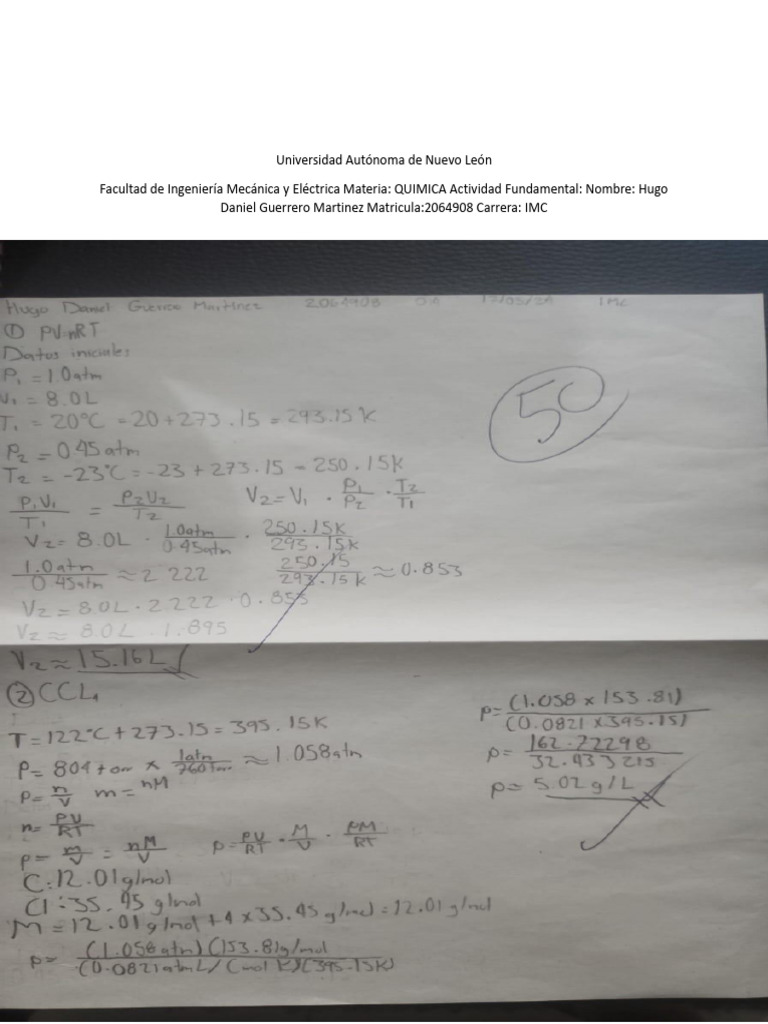 Universidad Autónoma de Nuevo León
Facultad de Ingeniería Mecánica y Eléctrica Materia: QUIMICA Actividad Fundamental: Nombre: Hugo
Daniel Guerrero Martinez Matricula:2064908 Carrera: IMC
Hugo Daniel Guerrero Martinez 2064908 17/05/24 IMC
① PV=nRT
Datos iniciales
P₁ = 1.0atm
V₁ = 8.0L
T₁ = 20°C = 20+273.15 = 293.15K
50
P₂ = 0.45atm
T₂ = -23°C = -23 + 273.15 = 250.15K
P₁V₁/T₁ = P₂V₂/T₂ V₂ = V₁ · P₁/P₂ · T₂/T₁
V₂ = 8.0L · 1.0atm/0.45atm · 250.15K/293.15K
1.0atm/0.45atm ≈ 2.222 250.15/293.15K ≈ 0.853
V₂ = 8.0L · 2.222 · 0.853
V₂ ≈ 8.0L · 1.895
V₂ ≈ 15.16L
② CCL₄
T = 122°C + 273.15 = 395.15K
P = 804torr × 1atm/760torr ≈ 1.058atm
ρ = n/V m = nM
n = PV/RT
ρ = m/V = nM/V ρ = PV/RT · M/V · PM/RT
C: 12.01g/mol
Cl: 35.45 g/mol
M = 12.01 g/mol + 4 × 35.45 g/mol = 12.01 g/mol
ρ = (1.058atm)(153.81g/mol/(0.0821atmL/(mol K)(395.15K)
ρ = (1.058 × 153.81)/(0.0821 × 395.15)
ρ = 162.72298/32.933215
ρ = 5.02 g/L